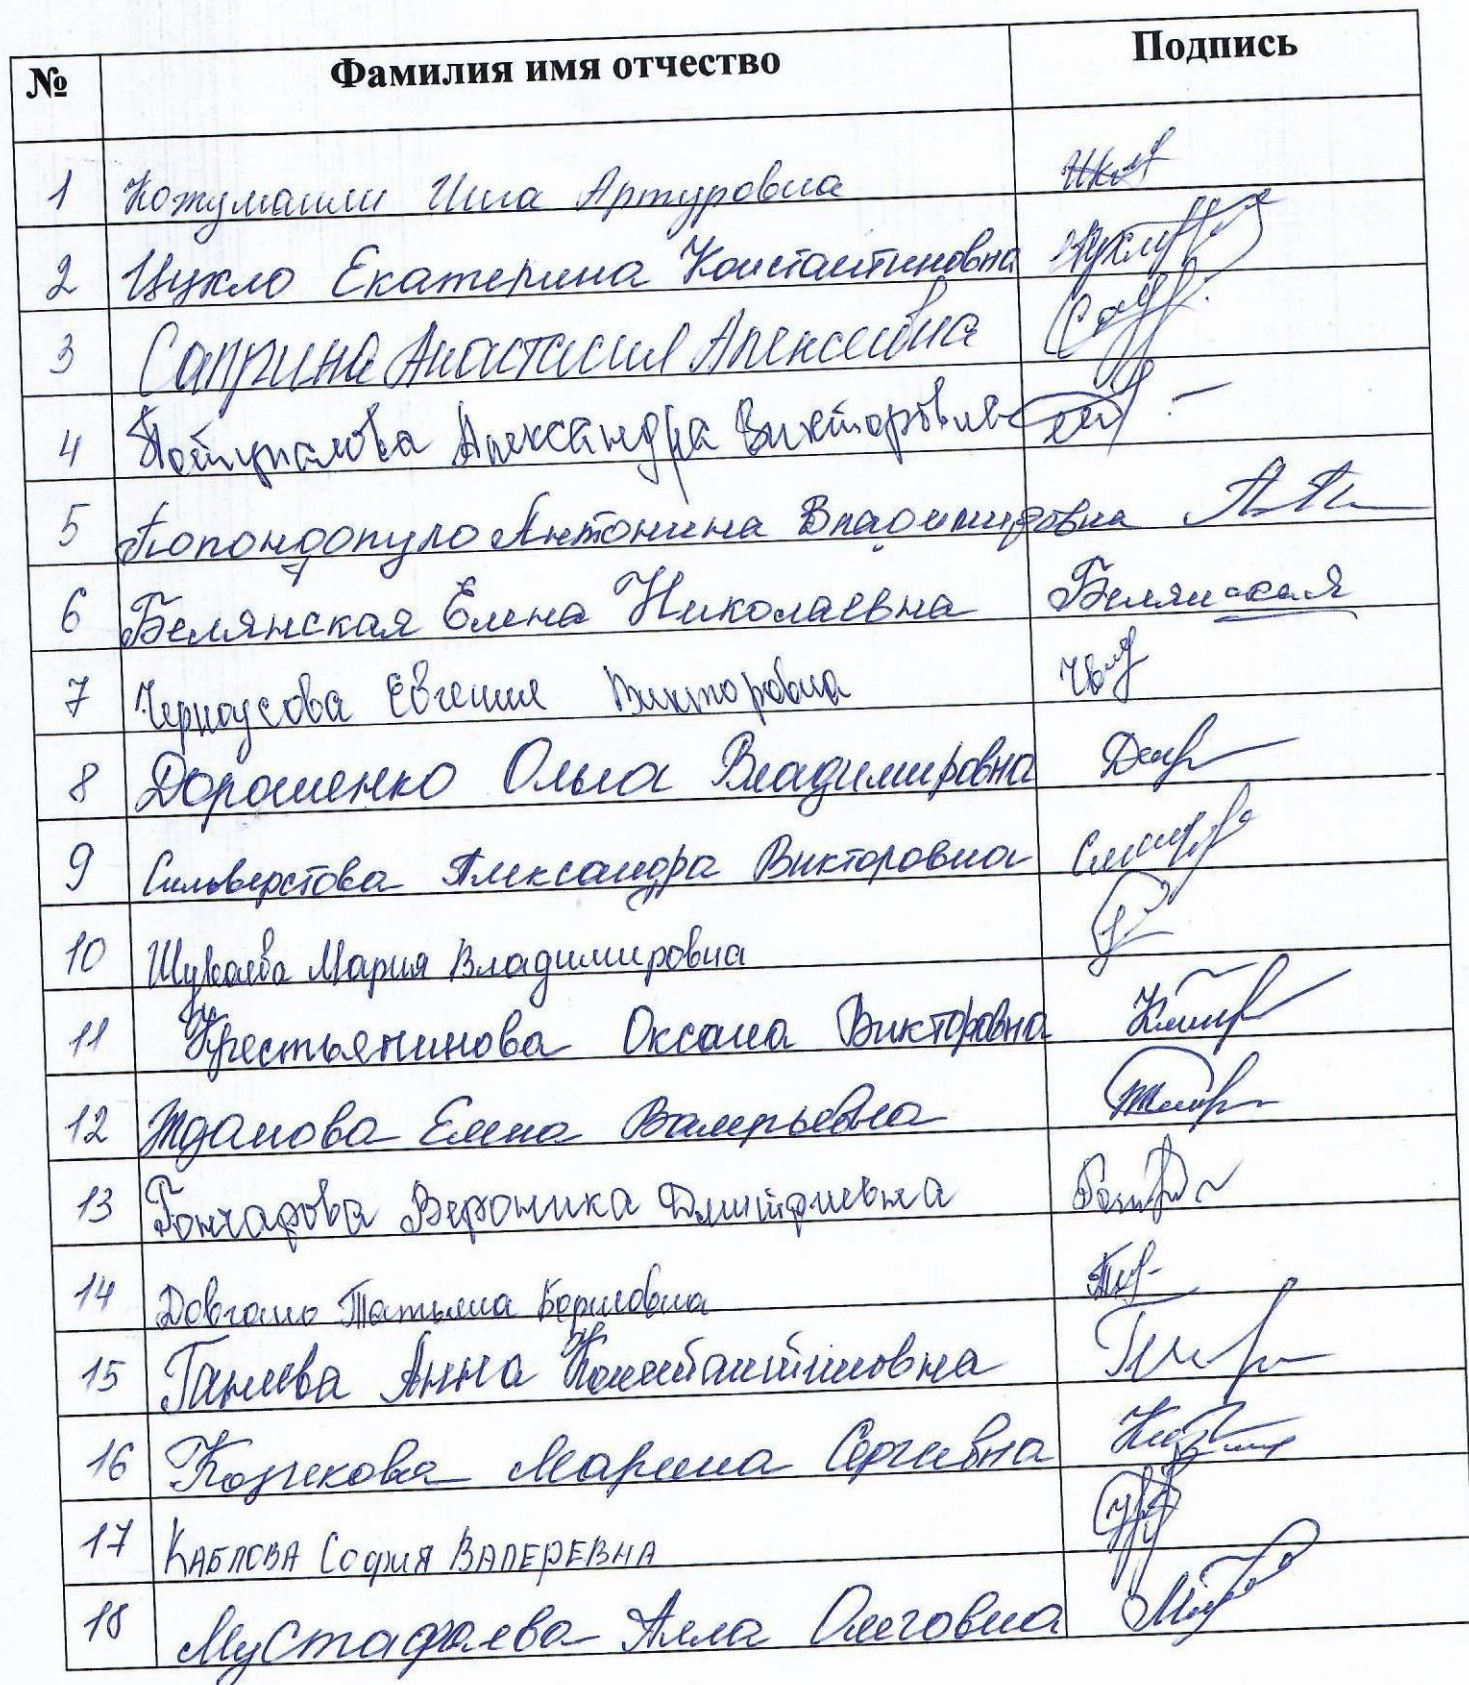 № Фамилия имя отчество Подпись
1 Артуровна
2 Цукло Екатерина Константиновна
3 Саприна Анастасия Алексеевна
4 Александра Викторовна
5 Попондопуло Антонина Владимировна
6 Белянская Елена Николаевна Белянская
7 Черноусова Евгения Викторовна
8 Дорошенко Ольга Владимировна
9 Сильверстова Александра Викторовна
10 Шукаева Мария Владимировна
11 Крестьянинова Оксана Викторовна
12 Жданова Елена Валерьевна
13 Гончарова Вероника Дмитриевна
14 Довгаль Татьяна Борисовна
15 Ганеева Анна Константиновна
16 Марина Сергеевна
17 КАБЛОВА СОфия ВАЛЕРЕВНА
18 Мустафаева Алла Олеговна